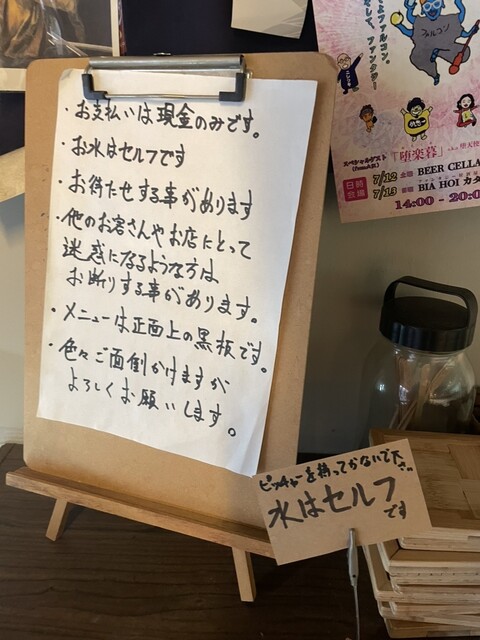 ・お支払いは現金のみです。
・お水はセルフです
・お待たせする事があります
・他のお客さんやお店にとって
迷惑になるような方は
お断りする事があります。
・メニューは正面上の黒板です。
・色々ご面倒かけますが
よろしくお願いします。
ピッチャーを持ってかないで下さい
水はセルフ
です
ファルコン。
そして、ファンタジー
ファルコン
スペシャルゲスト
「堕楽暮」
日時
会場
7/12
BEER CELLA
7/13
BIA HOI カタ
14:00 - 20:0